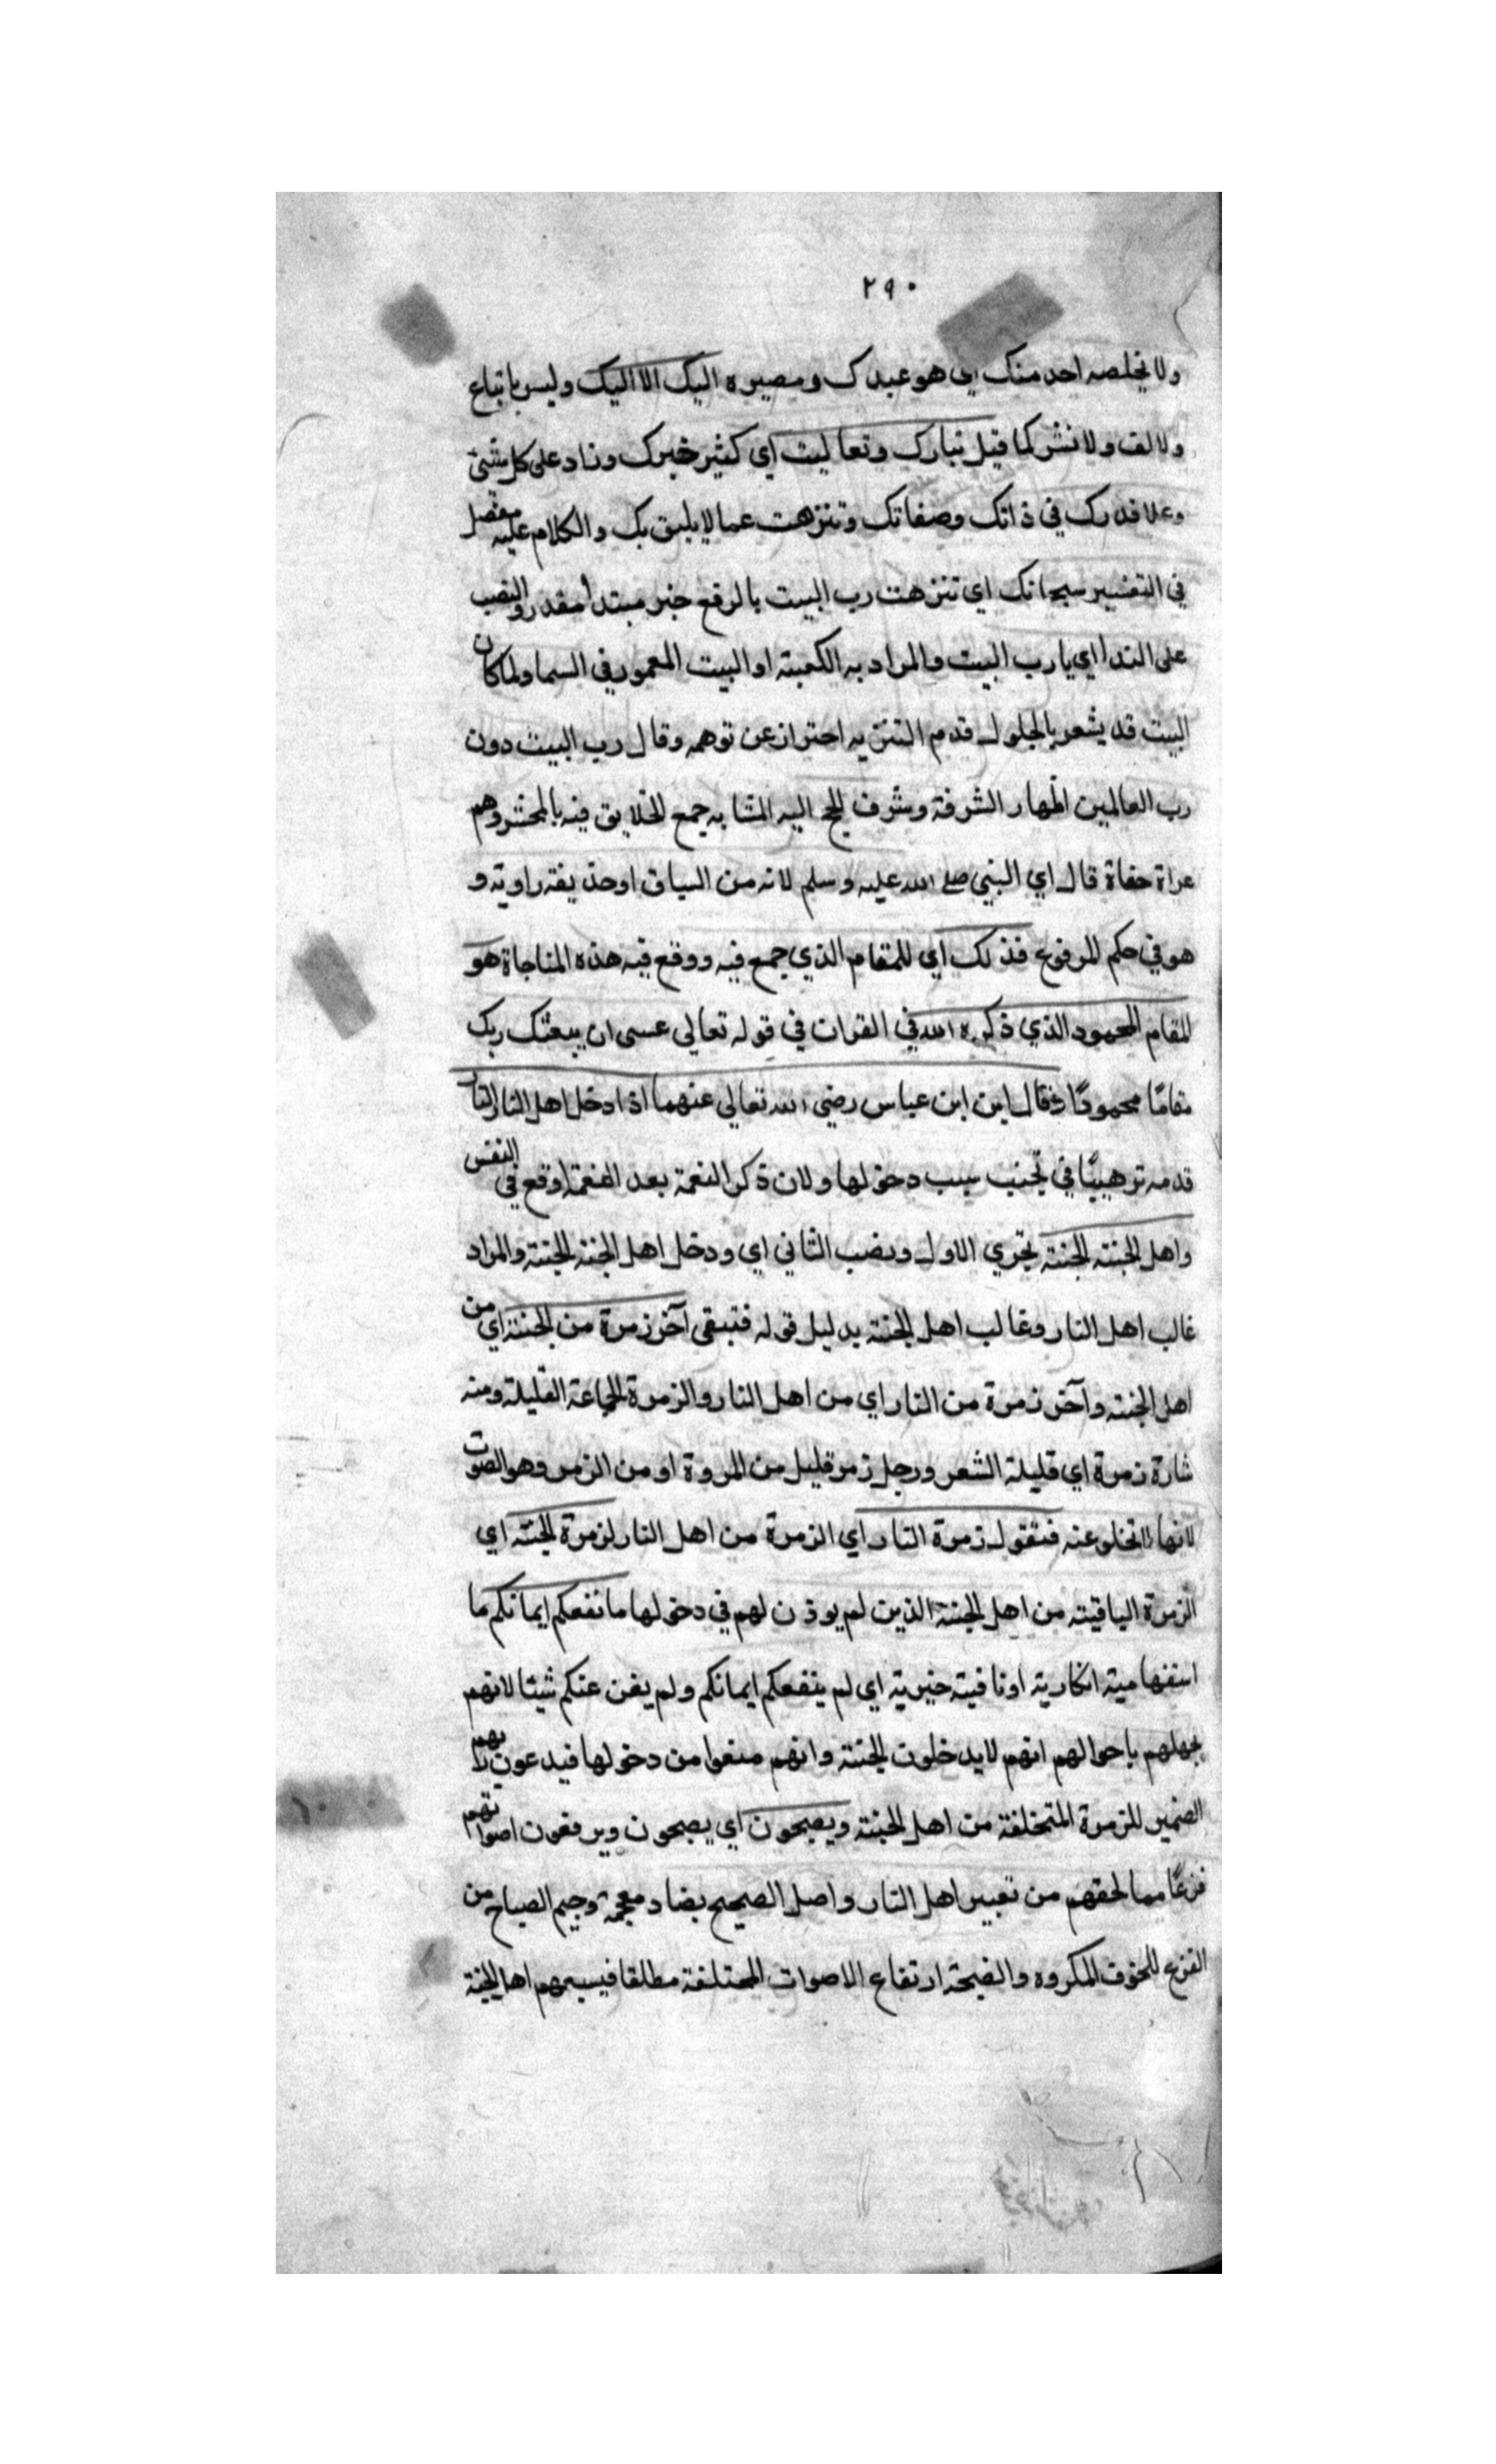 ٢٩٠
ولا يخلصه احد منك اي هو عبدك ومصيره اليك الا اليك وليس باتباع
ولا لف ولا نشر كما قيل تبارك وتعاليت اي كثير خيرك وزاد على كل شئ
وعلا قدرك في ذاتك وصفاتك وتنزهت عما لا يليق بك والكلام عليه مفصل
في التفسير سبحانك اي تنزهت رب البيت بالرفع خبر مبتدأ مقدر والنصب
على الندا اي يا رب البيت والمراد به الكعبة او البيت المعمور في السما ولما كان
البيت قد يشعر بالحلول قدم التنزيه احتراز عن توهمه وقال رب البيت دون
رب العالمين اظهار الشرفة وشرف الحج اليه المشابه جمع الخلايق فيه بالمحشر وهم
عراة حفاة قال اي النبي صلى الله عليه وسلم لانه من السياق او حذيفة راويه و
هو في حكم المرفوع فذلك اي المقام الذي جمع فيه ووقع فيه هذه المناجاة هو
المقام المحمود الذي ذكره الله في القران في قوله تعالي عسى ان يبعثك ربك
مقامًا محمودًا وقال ابن ابن عباس رضي الله تعالي عنهما اذا دخل اهل النار النار
قدمه ترهيبًا في تجنب سبب دخولها ولان ذكر النعمة بعد النقمة اوقع في النفس
واهل الجنة الجنة بجري الاول ونصب الثاني اي ودخل اهل الجنة الجنة والمراد
غالب اهل النار وغالب اهل الجنة بدليل قوله فتبقى آخر زمرة من الجنة اي من
اهل الجنة وآخر زمرة من النار اي من اهل النار والزمرة الجماعة القليلة ومنه
شارة زمرة اي قليلة الشعر ورجل زمر قليل من المروة او من الزمر وهو الصوت
لانها لا تخلو عنه فتقول زمرة النار اي الزمرة من اهل النار لزمرة الجنة اي
الزمرة الباقية من اهل الجنة الذين لم يوذن لهم في دخولها ما نفعكم ايمانكم ما
استفهامية انكارية او نافية خبرية اي لم ينفعكم ايمانكم ولم يغن عنكم شيئا لانهم
بجهلهم باحوالهم انهم لا يدخلون الجنة وانهم منعوا من دخولها فيدعون ربهم
الضمير للزمرة المتخلفة من اهل الجنة ويضجون اي يصيحون ويرفعون اصواتهم
فزعًا مما لحقهم من تعيير اهل النار واصل الضجيج بضاد معجمة وجيم الصياح من
الفزع للخوف المكروه والضجة ارتفاع الاصوات المختلفة مطلقا فيسمعهم اهل الجنة